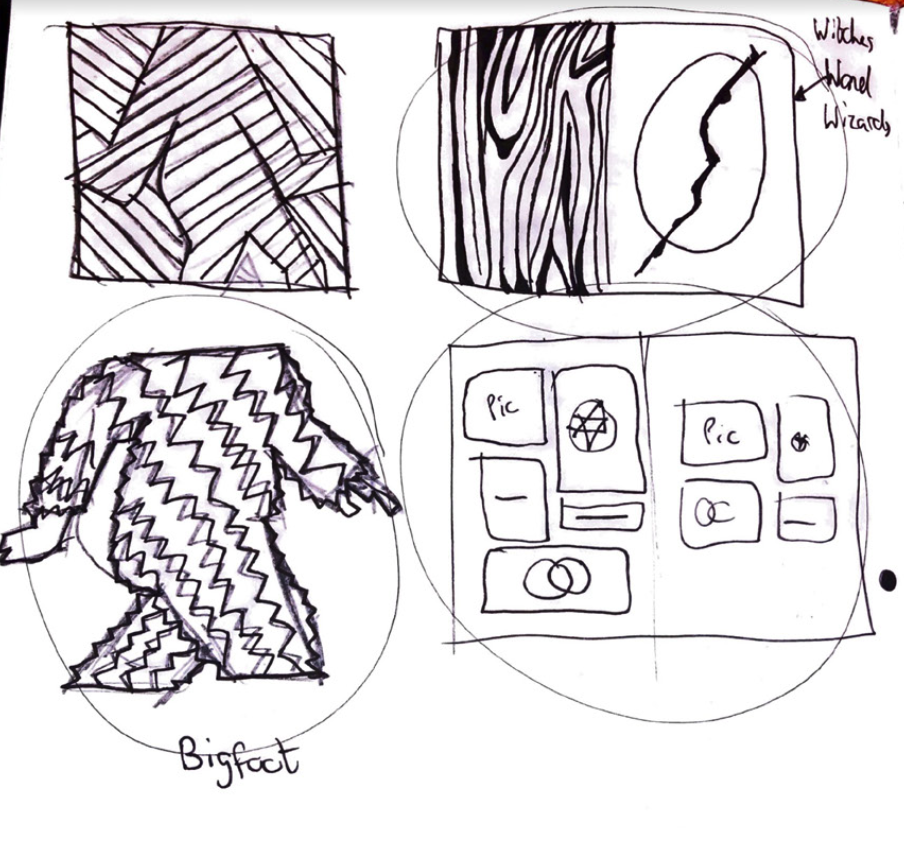 Witches
Wand
Wizards
Pic
Pic
Bigfoot